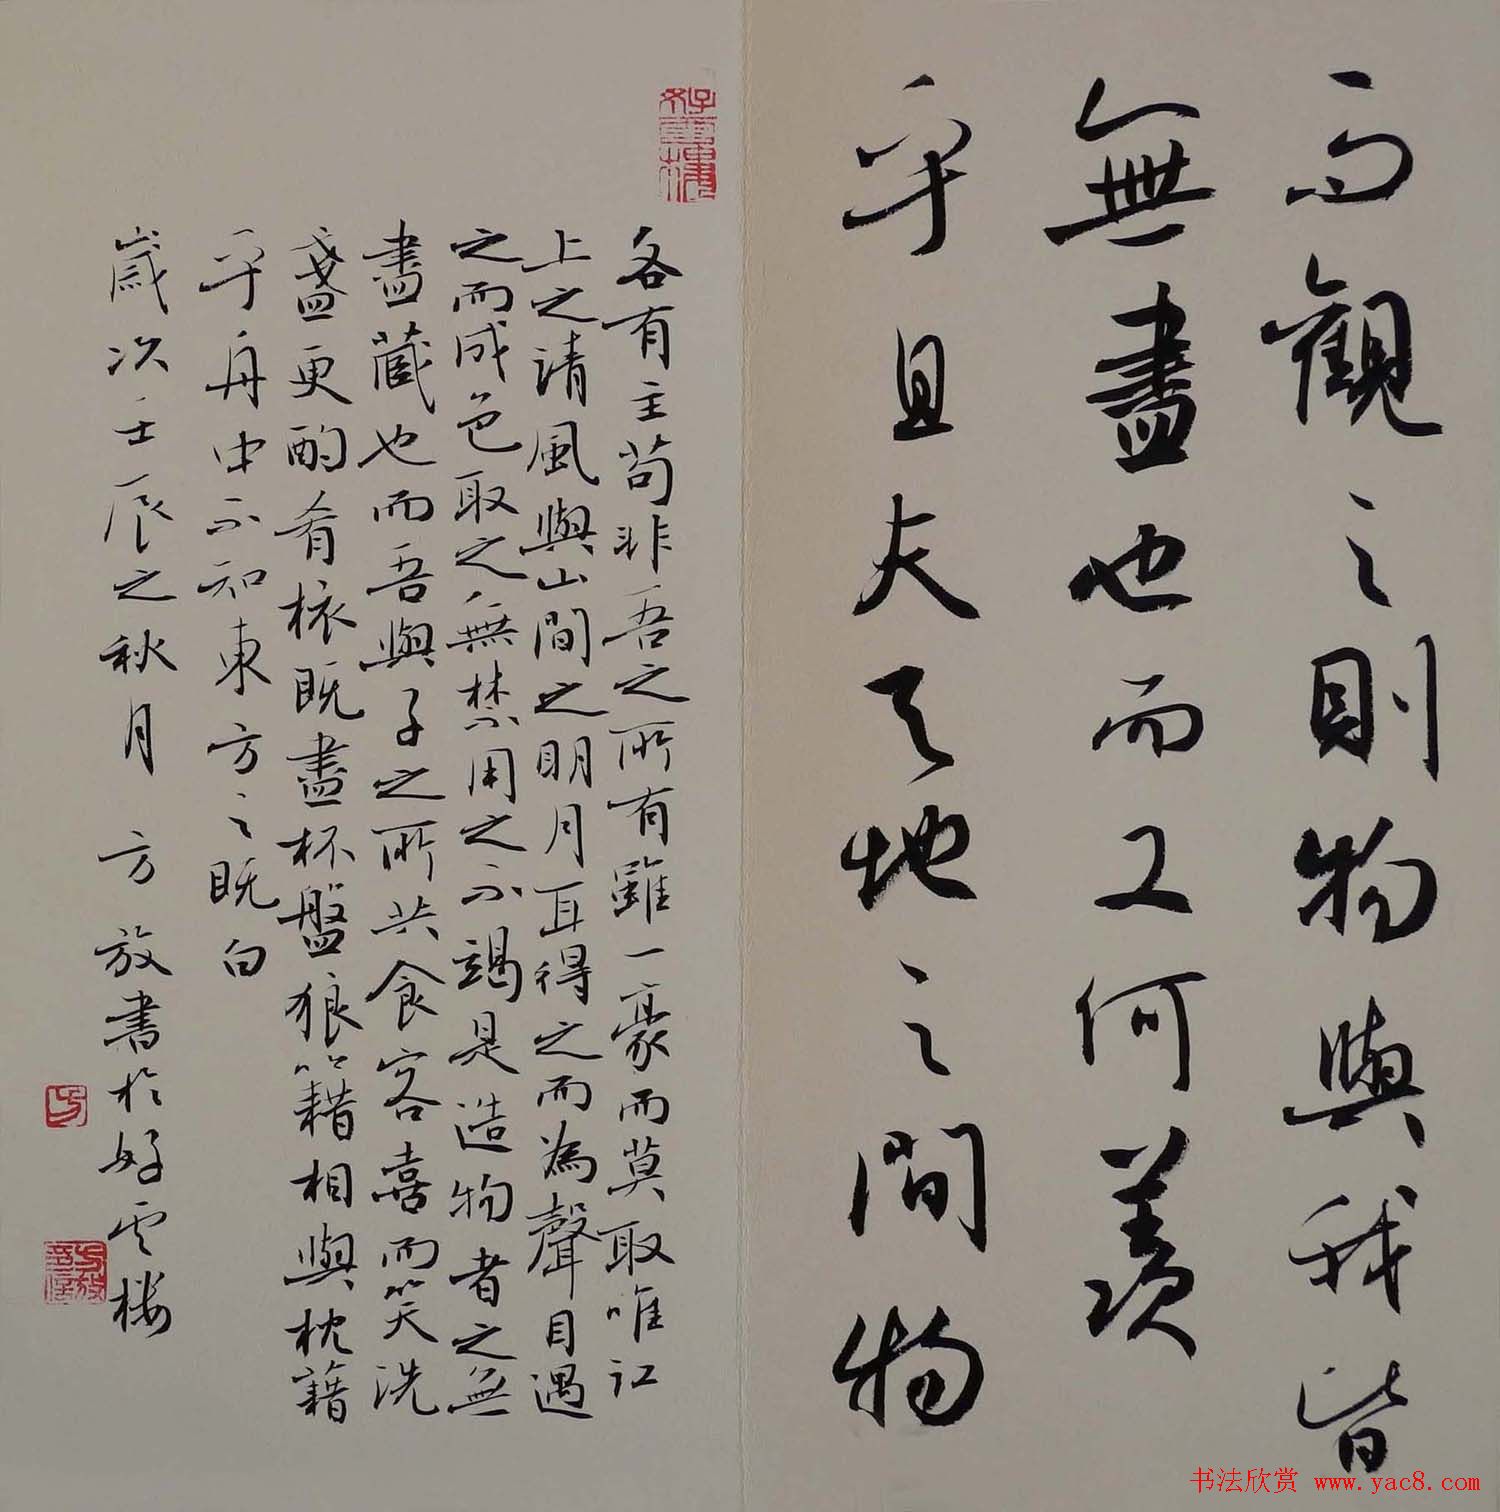 而觀之則物與我皆
無盡也而又何羨
乎且夫天地之間物
好雲樓
各有主苟非吾之所有雖一豪而莫取唯江
上之清風與山間之明月耳得之而為聲目遇
之而成色取之無禁用之不竭是造物者之無
盡藏也而吾與子之所共食客喜而笑洗
盞更酌肴核既盡杯盤狼籍相與枕藉
乎舟中不知東方之既白
歲次壬辰之秋月 方放書於好雲楼
方
方放印信
书法欣赏 www.yac8.com